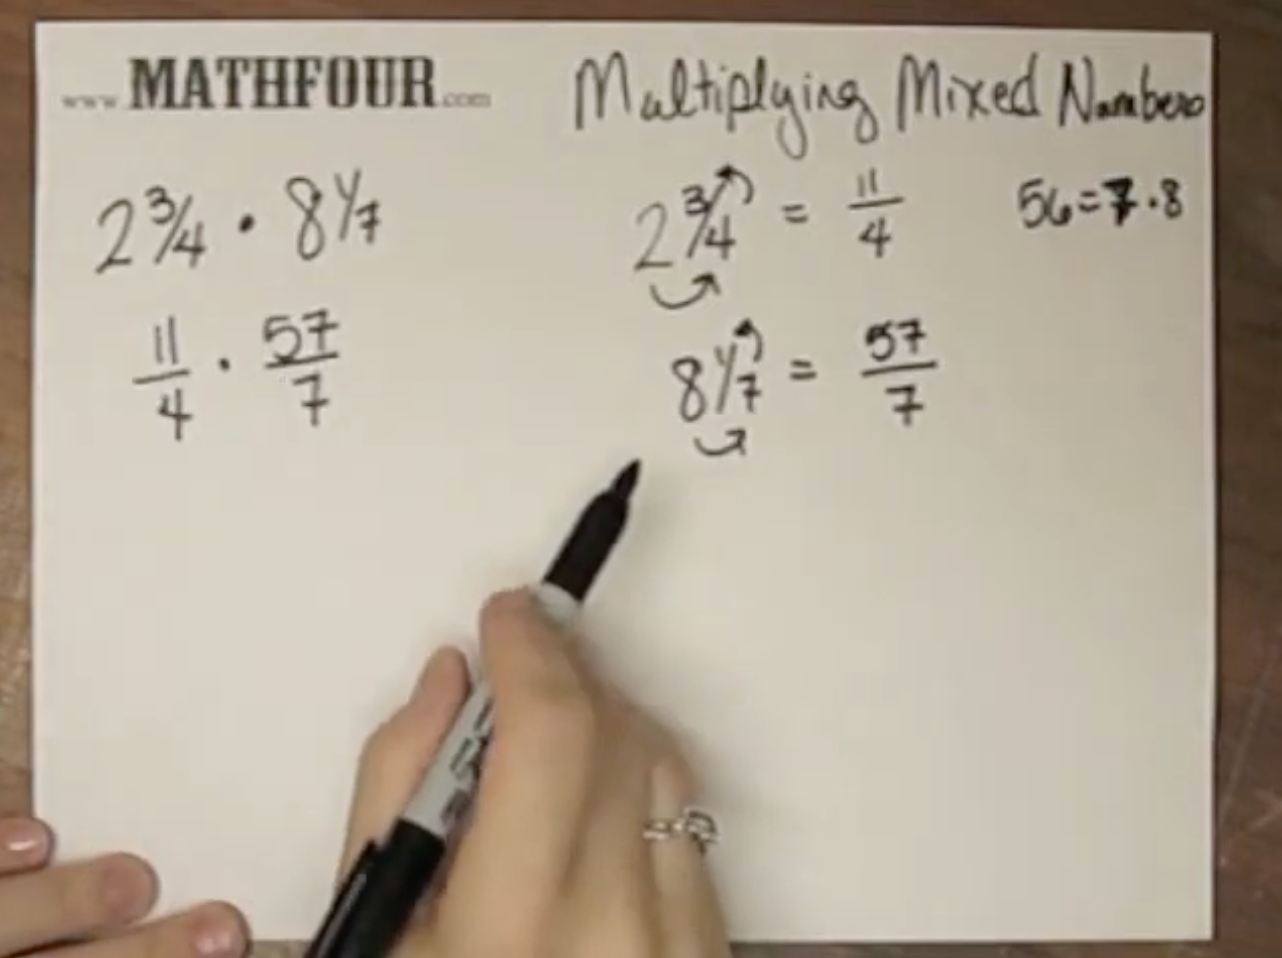 www.MATHFOUR.com
Multiplying Mixed Numbers
2 3/4 · 8 1/7
11/4 · 57/7
2 3/4 = 11/4
56=7·8
8 1/7 = 57/7